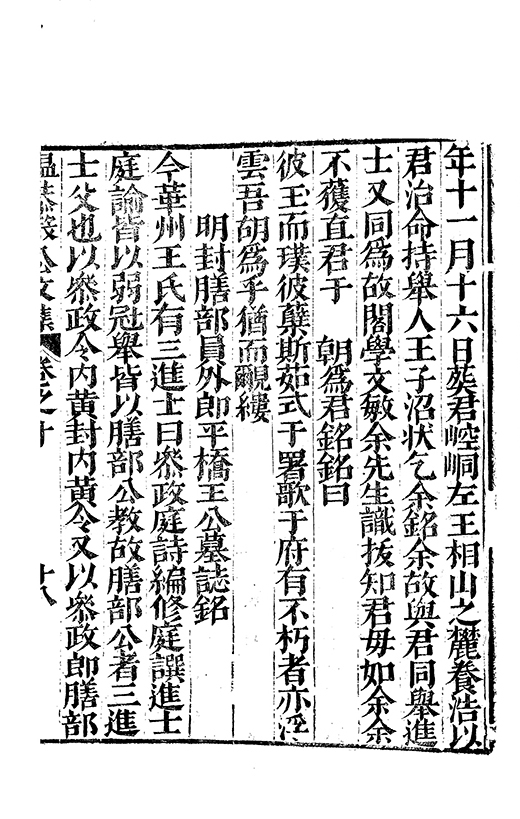 年十一月十六日葬君崆峒左王相山之麓養浩以
君治命持舉人王子沼狀乞余銘余故與君同舉進
士又同爲故閣學文敏余先生識拔知君毋如余余
不獲直君于　朝爲君銘銘曰
彼玉而璞彼蘖斯茹式于署歌于府有不朽者亦浮
雲吾胡爲乎猶而覼縷
明封膳部員外郎平橋王公墓誌銘
今華州王氏有三進士曰叅政庭詩編修庭譔進士
庭諭皆以弱冠舉皆以膳部公教故膳部公者三進
士父也以叅政令内黃封内黃令又以叅政郎膳部
温恭毅公文集　卷之十　十八